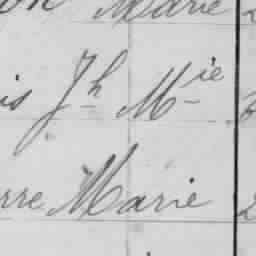 Marie
is Jh Mie
rre Marie 2